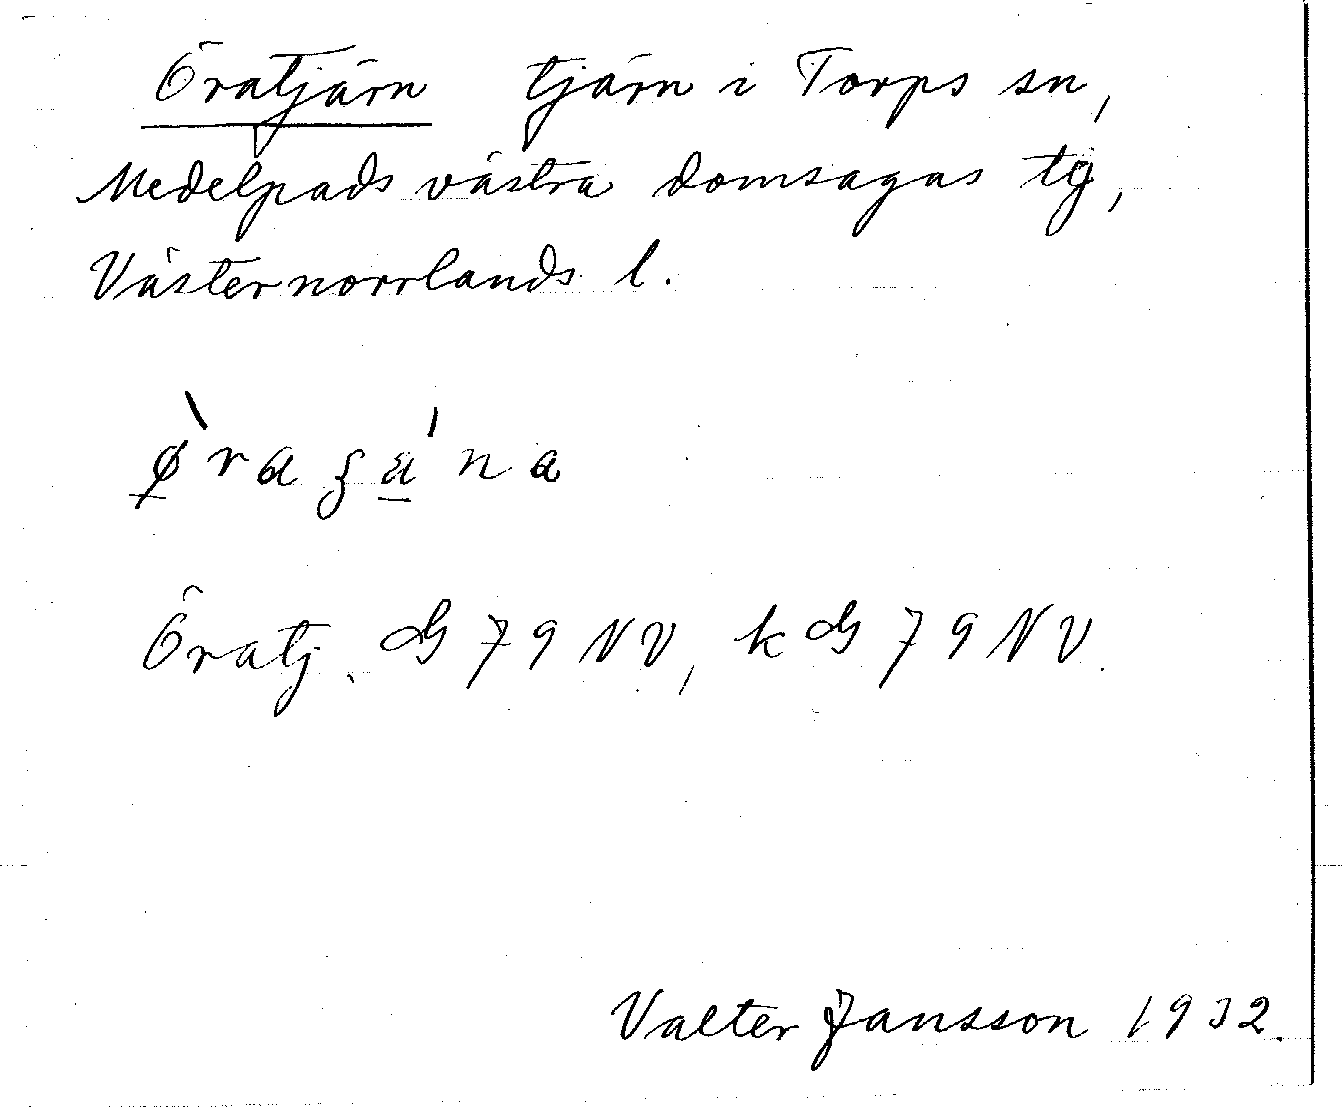 Öratjärn tjärn i Torps sn,
Medelpads västra domsagas tg,
Västernorrlands l.
Öratj. G 79 NV, k G 79 NV.
Valter Jansson 1932.